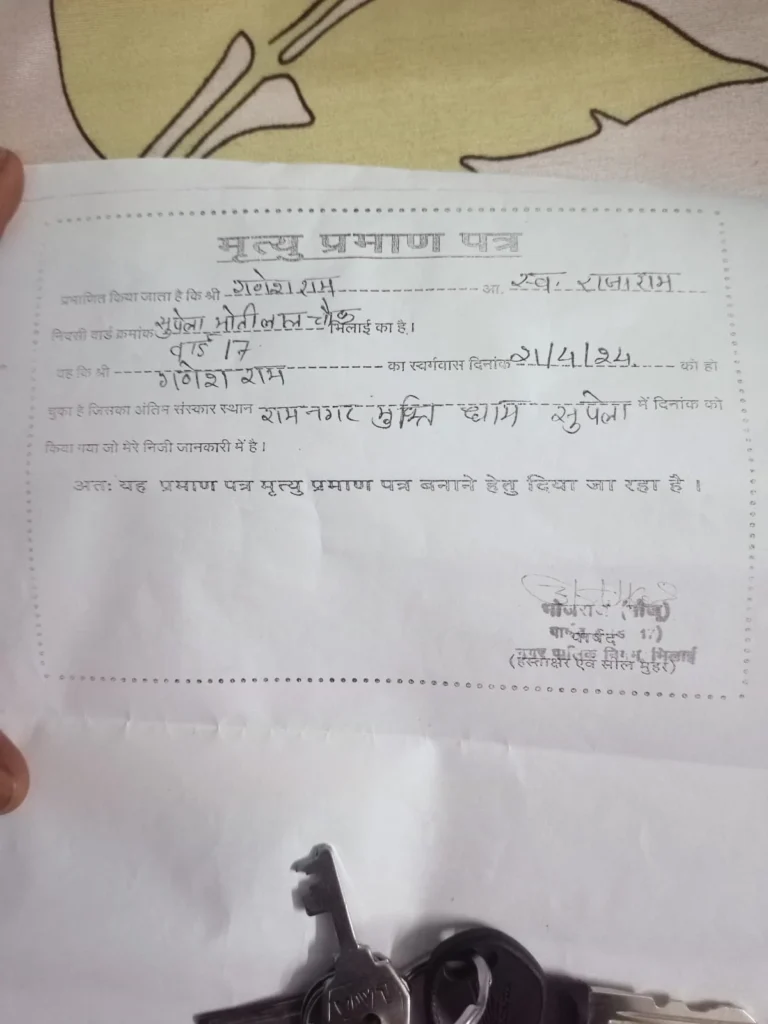 मृत्यु प्रमाण पत्र
प्रमाणित किया जाता है कि श्री गणेश राम आ. स्व. राजाराम
निवासी वार्ड क्रमांक सुपेला मोतीलाल चौक भिलाई का है।
वार्ड 17
यह कि श्री गणेश राम का स्वर्गवास दिनांक 21/4/24 को हो
चुका है जिसका अंतिम संस्कार स्थान रामनगर मुक्ति धाम सुपेला में दिनांक को
किया गया जो मेरे निजी जानकारी में है।
अतः यह प्रमाण पत्र मृत्यु प्रमाण पत्र बनाने हेतु दिया जा रहा है।
भोजराज (भोजू)
पार्षद 17)
नगर पालिक निगम, भिलाई
(हस्ताक्षर एवं सील मुहर)